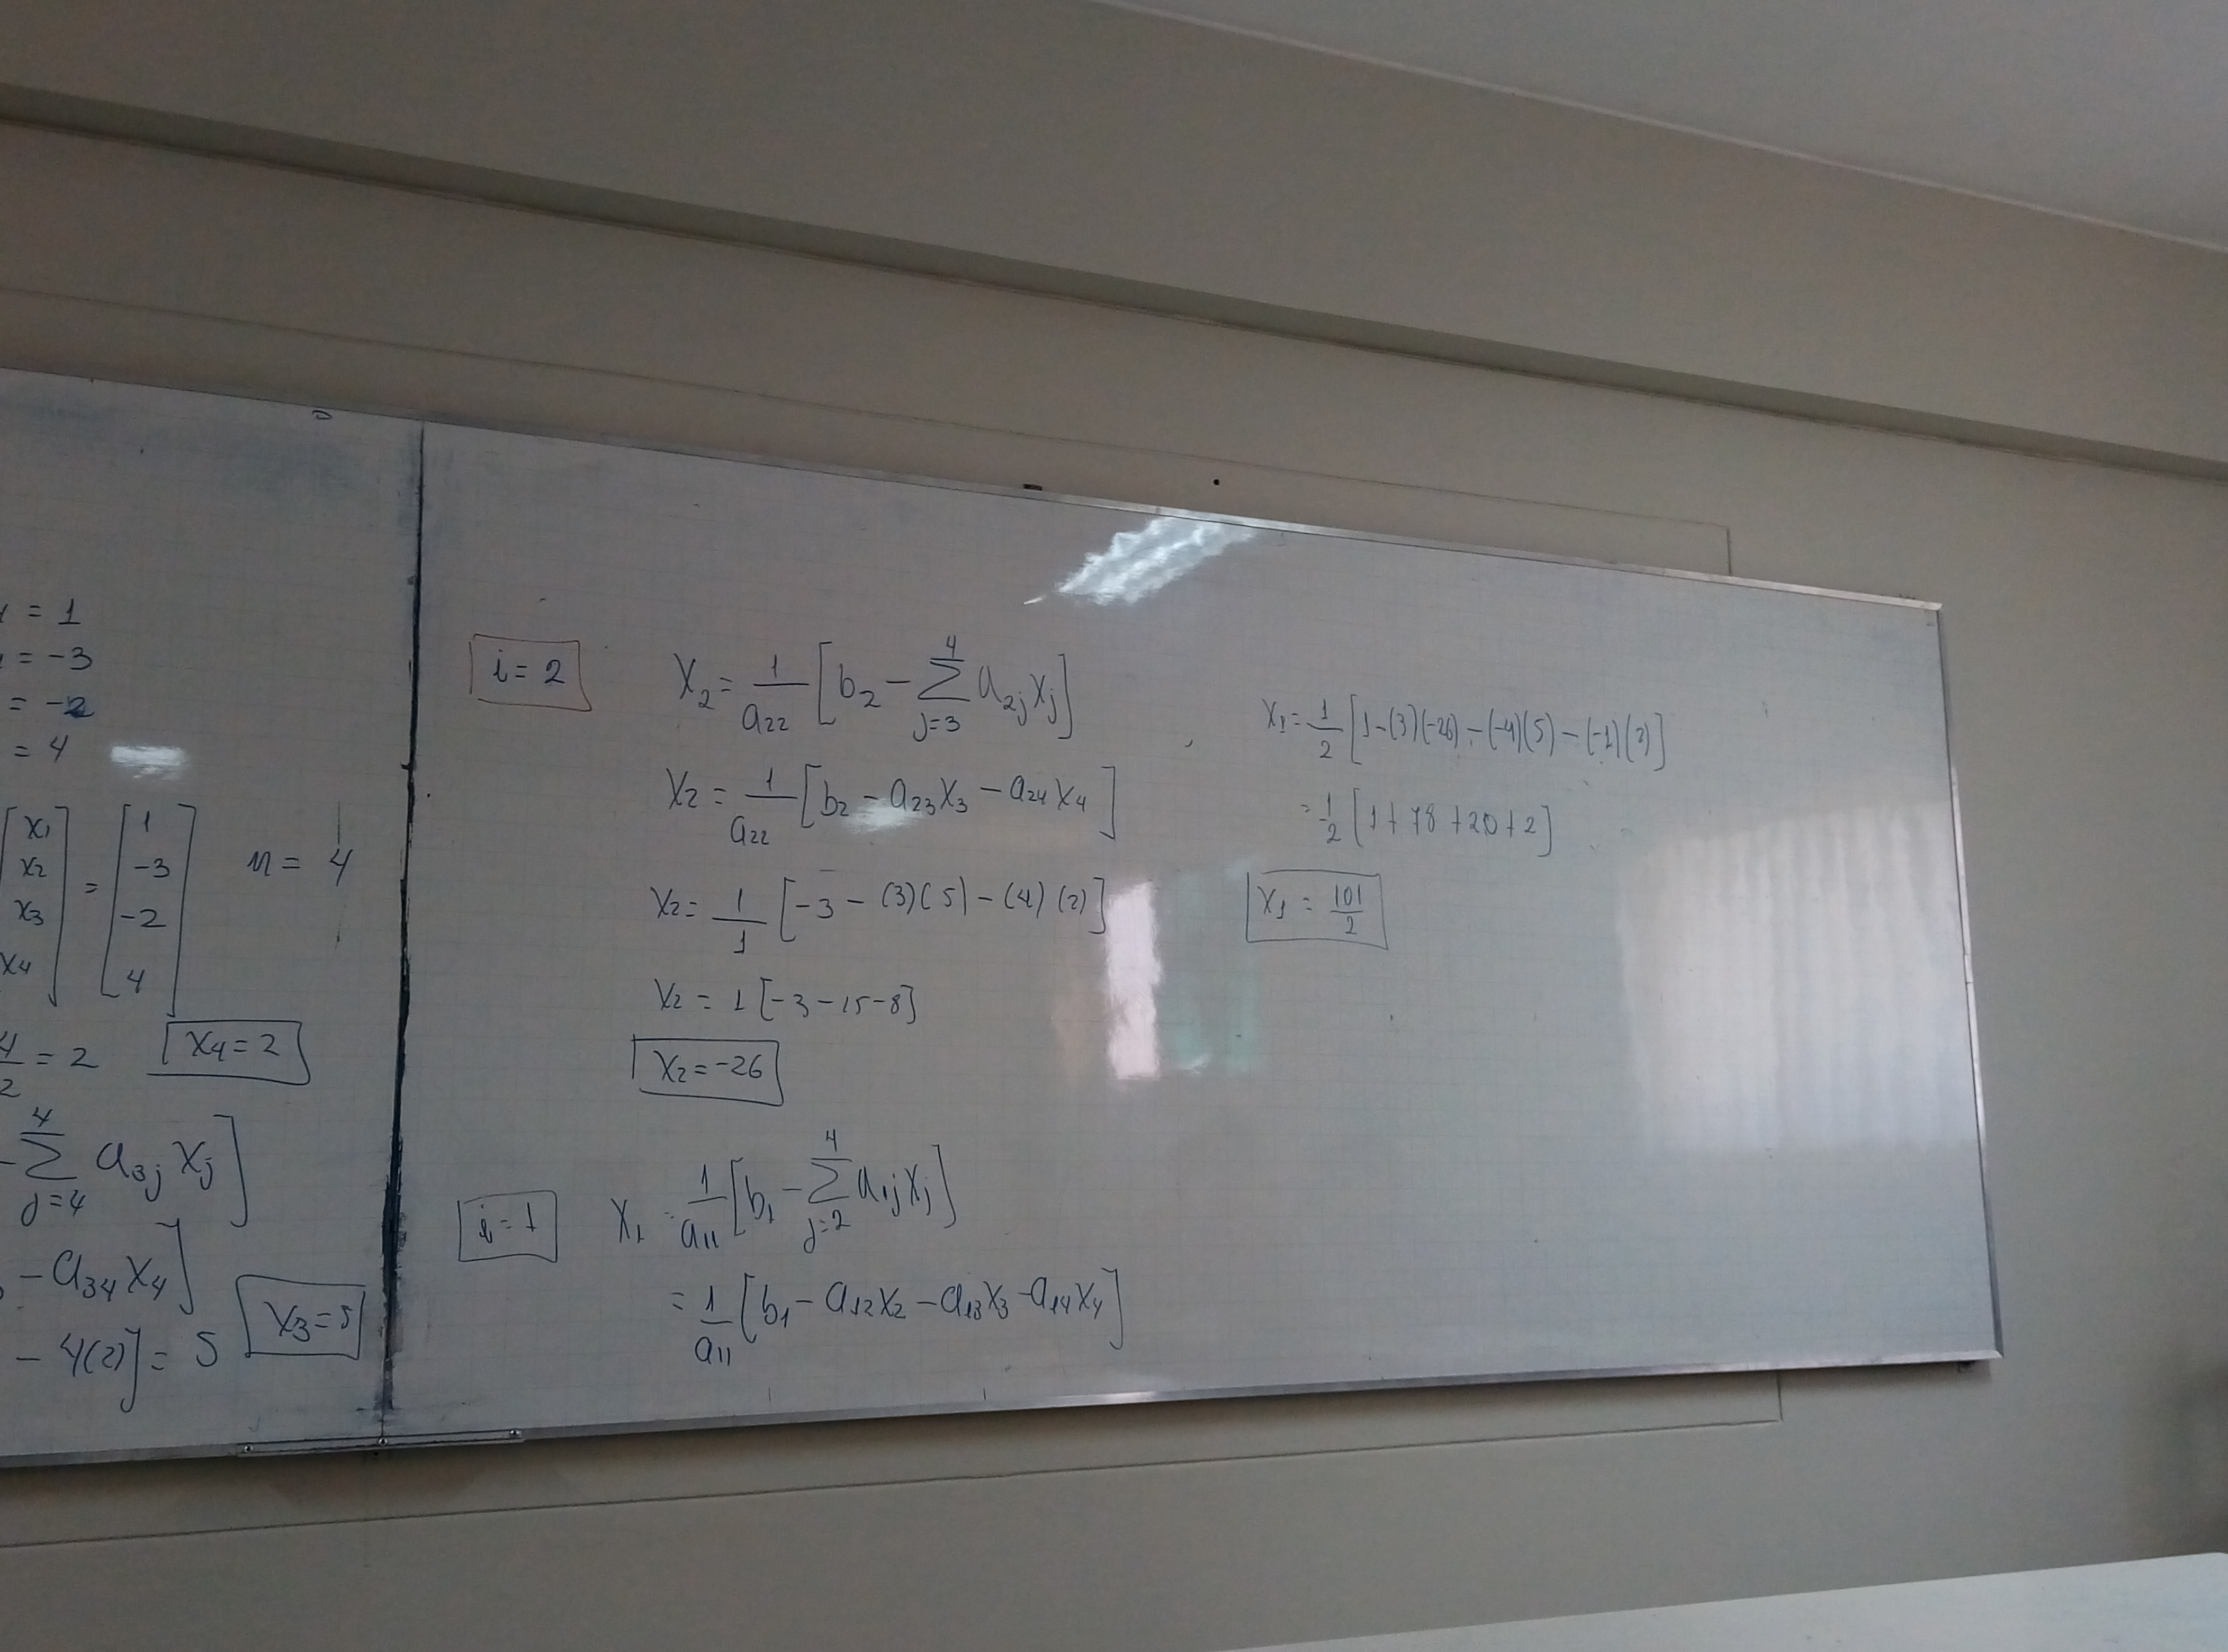 = 1
= -3
= -2
= 4
[x₁ x₂ x₃ x₄] = [1 -3 -2 4] n = 4
4/2 = 2 x₄ = 2
- ∑_{j=4}^{4} a₃ⱼ xⱼ]
- a₃₄ x₄]
- 4(2)] = 5 x₃ = 5
i = 2 x₂ = 1/a₂₂ [b₂ - ∑_{j=3}^{4} a₂ⱼ xⱼ]
x₂ = 1/a₂₂ [b₂ - a₂₃x₃ - a₂₄x₄]
x₂ = 1/1 [-3 - (3)(5) - (4)(2)]
x₂ = 1 [-3 - 15 - 8]
x₂ = -26
i = 1 x₁ = 1/a₁₁ [b₁ - ∑_{j=2}^{4} a₁ⱼ xⱼ]
= 1/a₁₁ [b₁ - a₁₂x₂ - a₁₃x₃ - a₁₄x₄]
x₁ = 1/2 [1 - (3)(-26) - (-4)(5) - (-1)(2)]
= 1/2 [1 + 78 + 20 + 2]
x₁ = 101/2